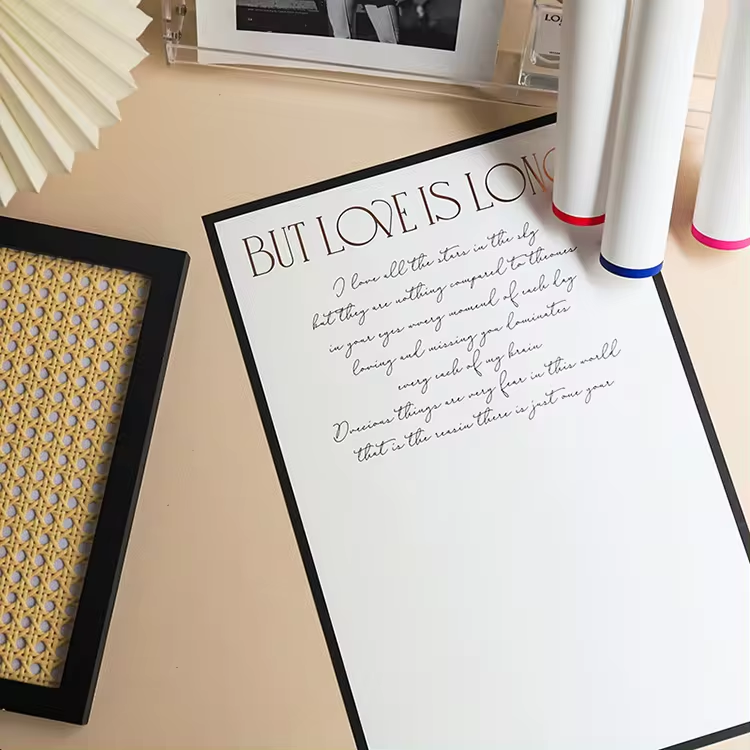 LO
BUT LOVE IS LONG
I love all the stars in the sky
but they are nothing compared to theones
in your eyes wvery momenl of each day
loving and missing you luminates
every each of my brain
Drecious things are very fear in this world
that is the reasin there is just one your